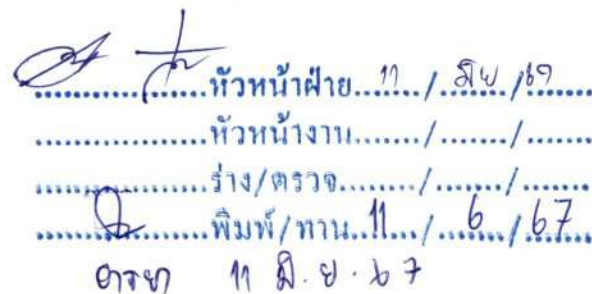 หัวหน้าฝ่าย 11 / มิย / 67
หัวหน้างาน / /
ร่าง/ตรวจ / /
พิมพ์/ทาน 11 / 6 / 67
11 มิ.ย. 67